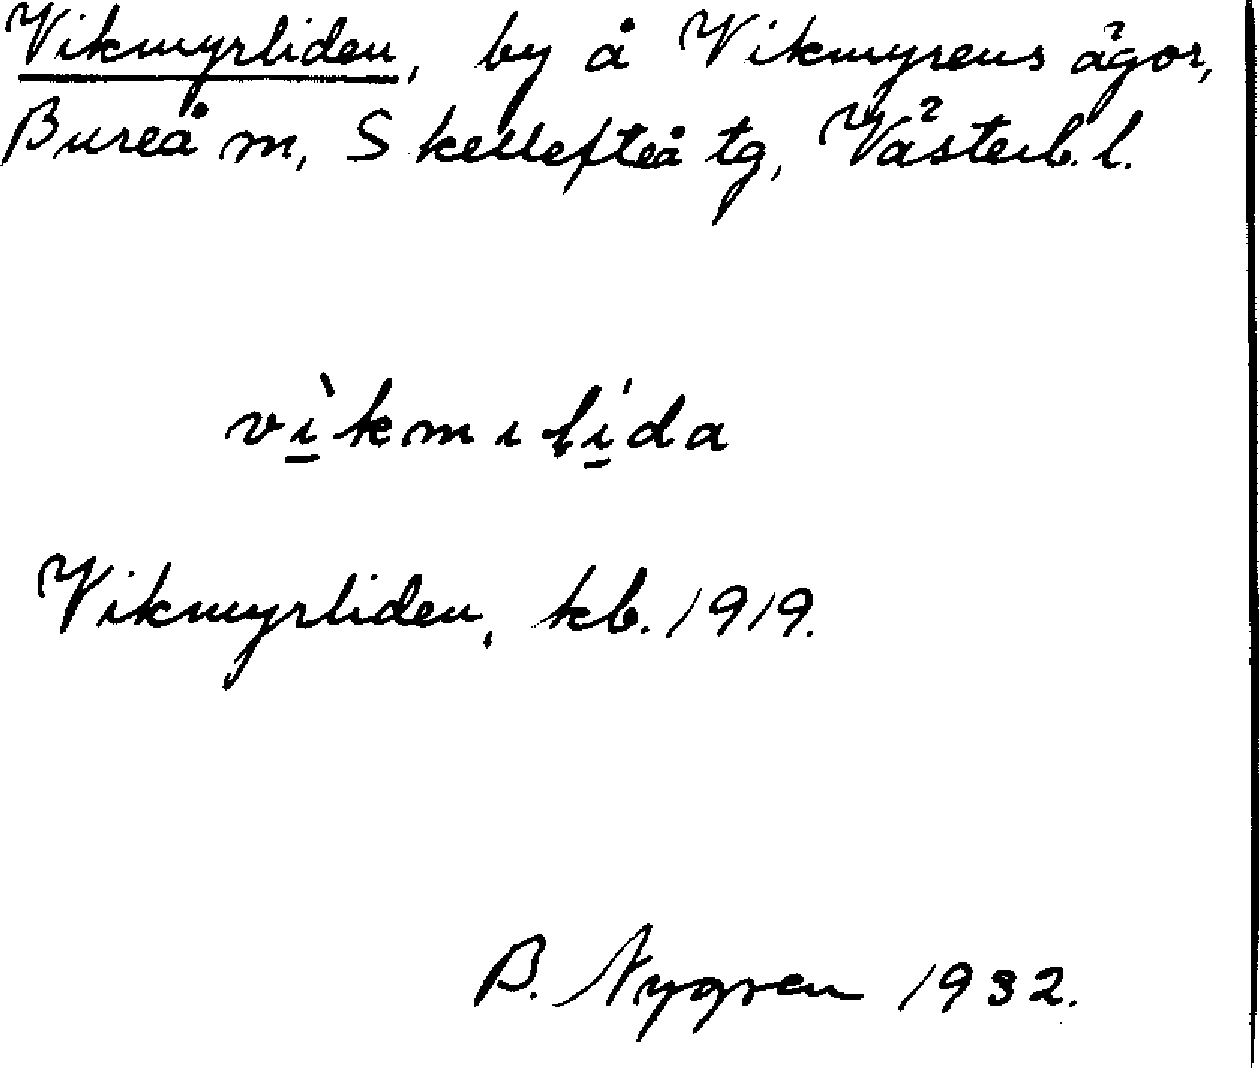 Vikmyrliden, by å Vikmyrens ägor,
Bureå m, Skellefteå tg, Västerb. l.
vìkmılída
Vikmyrliden, kb. 1919.
B. Nygren 1932.